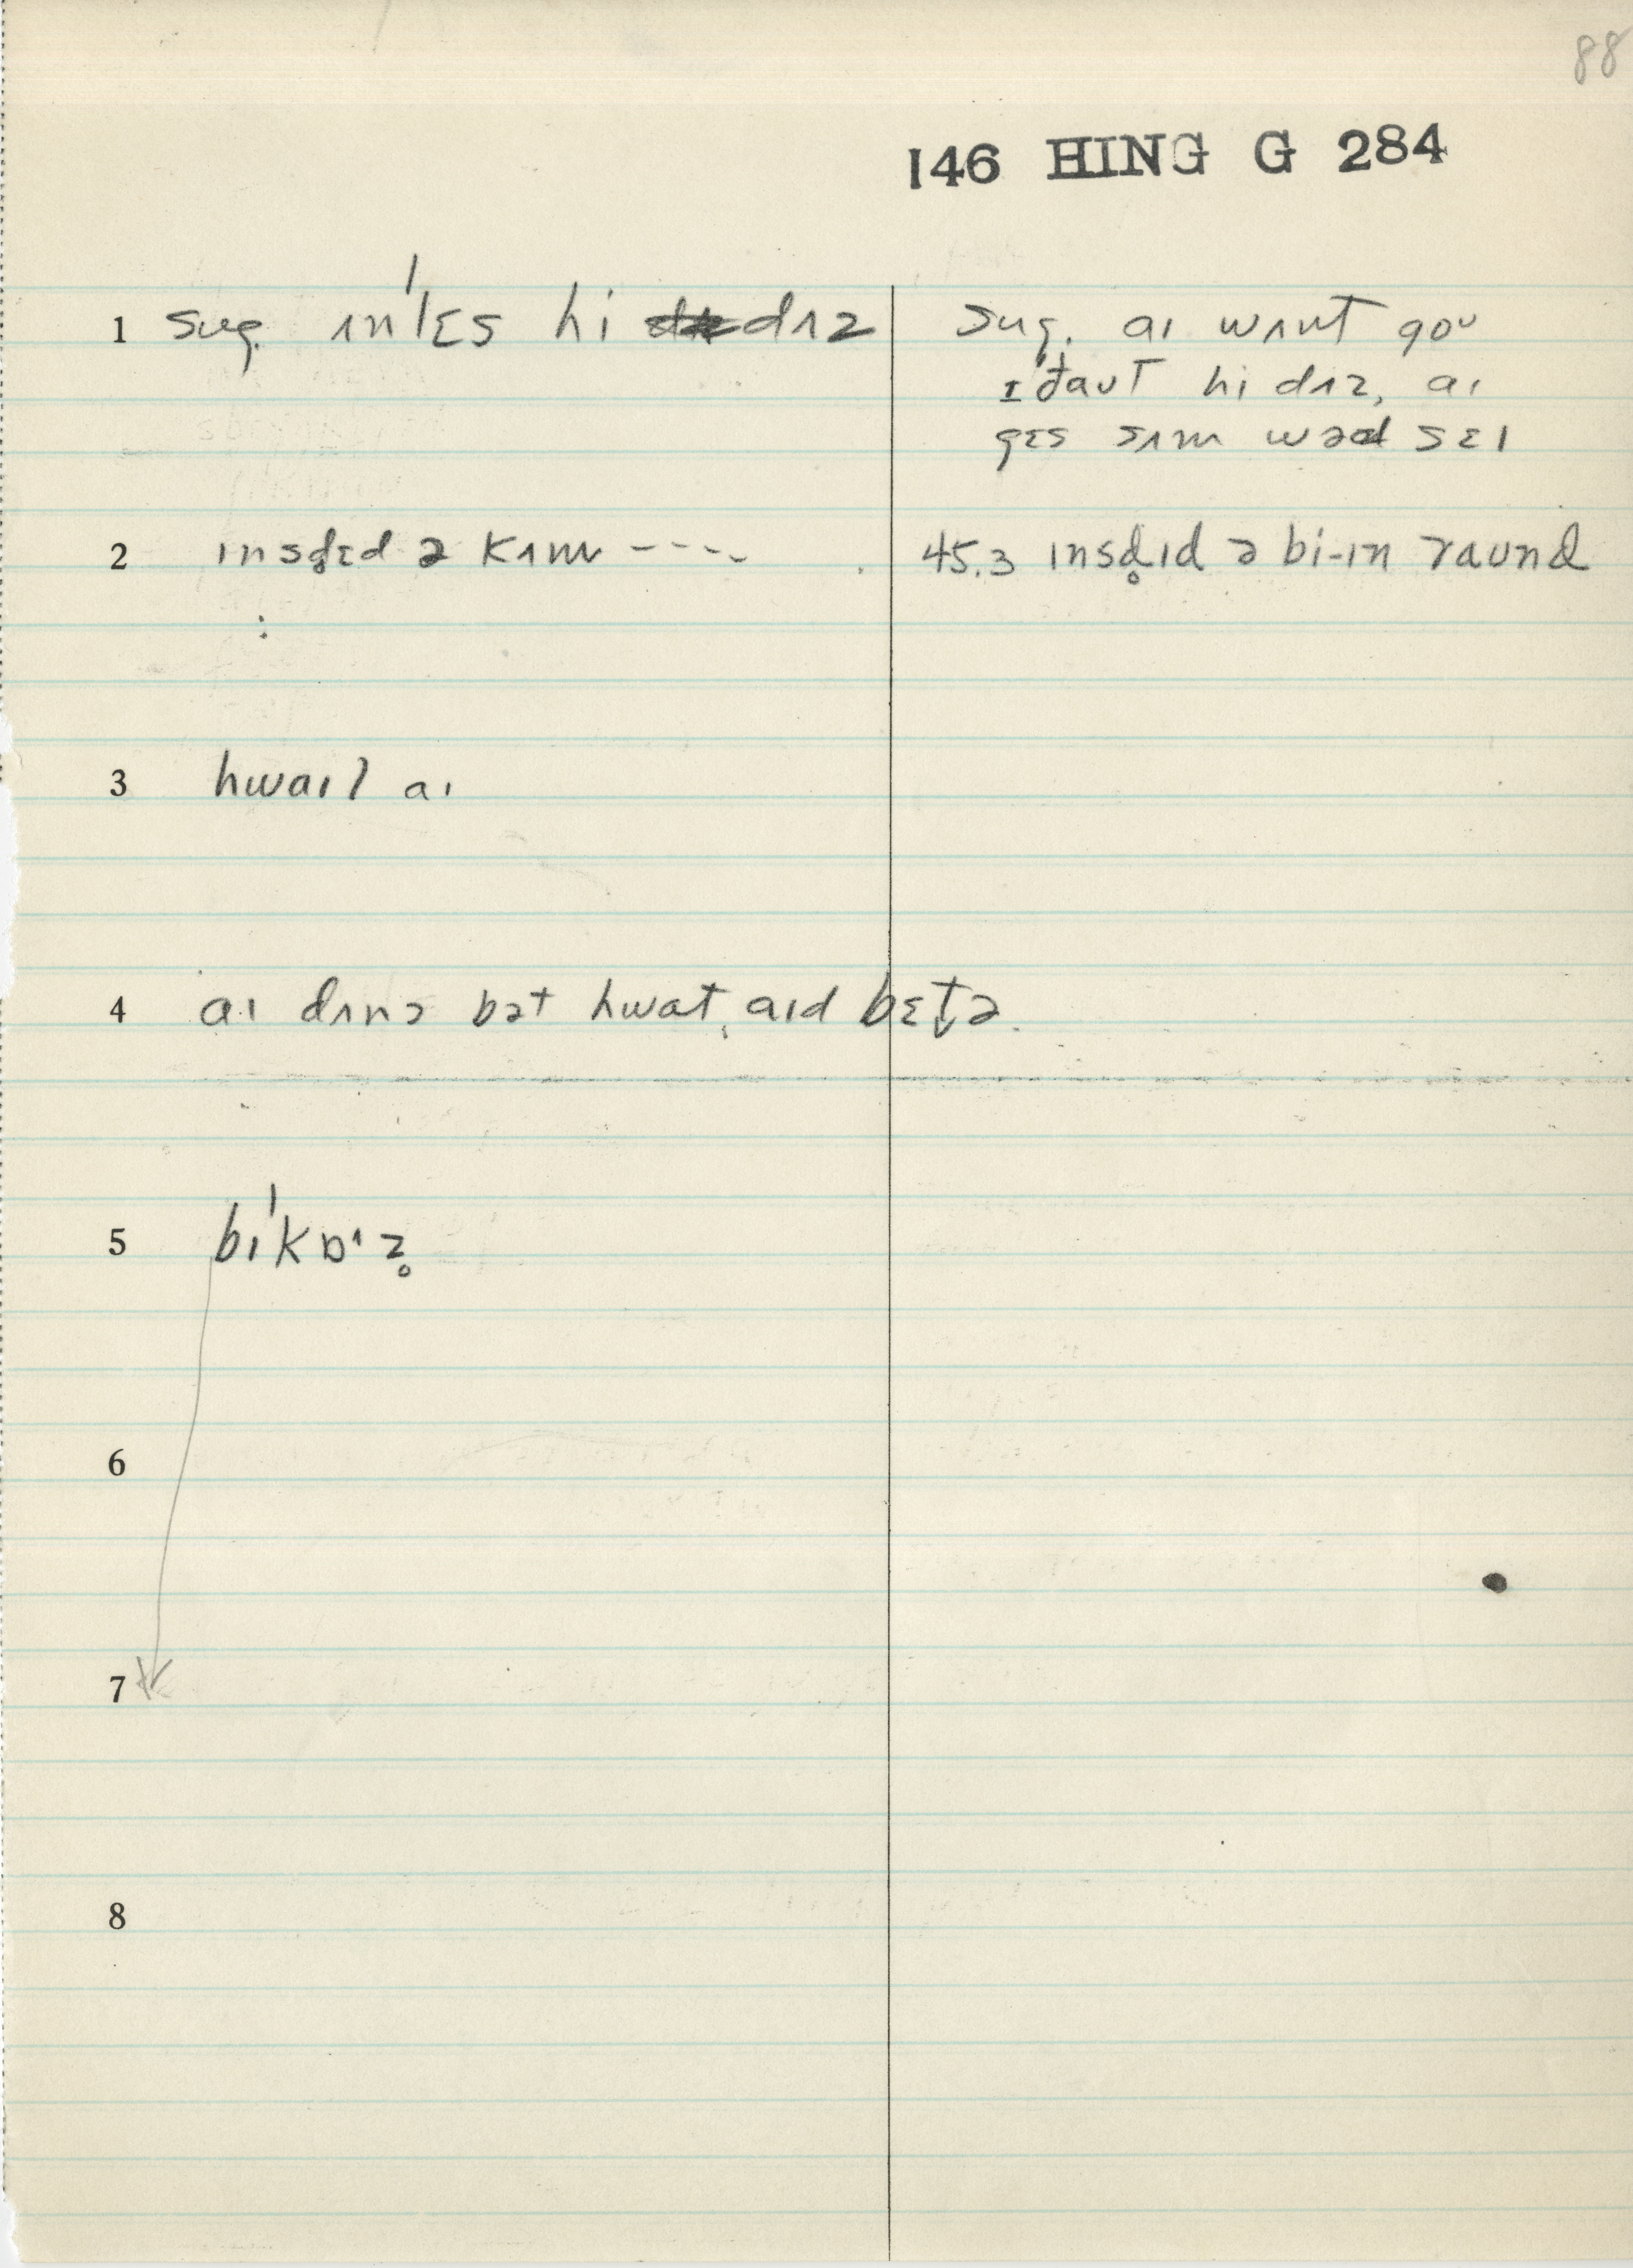 88
146 HING G 284
1 sug. ʌn'lɛs hi dʌz
sug. aɪ wʌnt goʊ
ɪ'đaʊt hi dʌz, aɪ
gɛs sʌm wəd seɪ
2 ɪnsd̥ɛd ə kʌm ----
45.3 ɪnsd̥ɪd ə bi-ɪn raʊnd
:
3 hwaɪl aɪ
4 aɪ dʌnə bət hwat aɪd bɛt̬ə.
5 bɪ'kɒ˔z̥
6
7
8